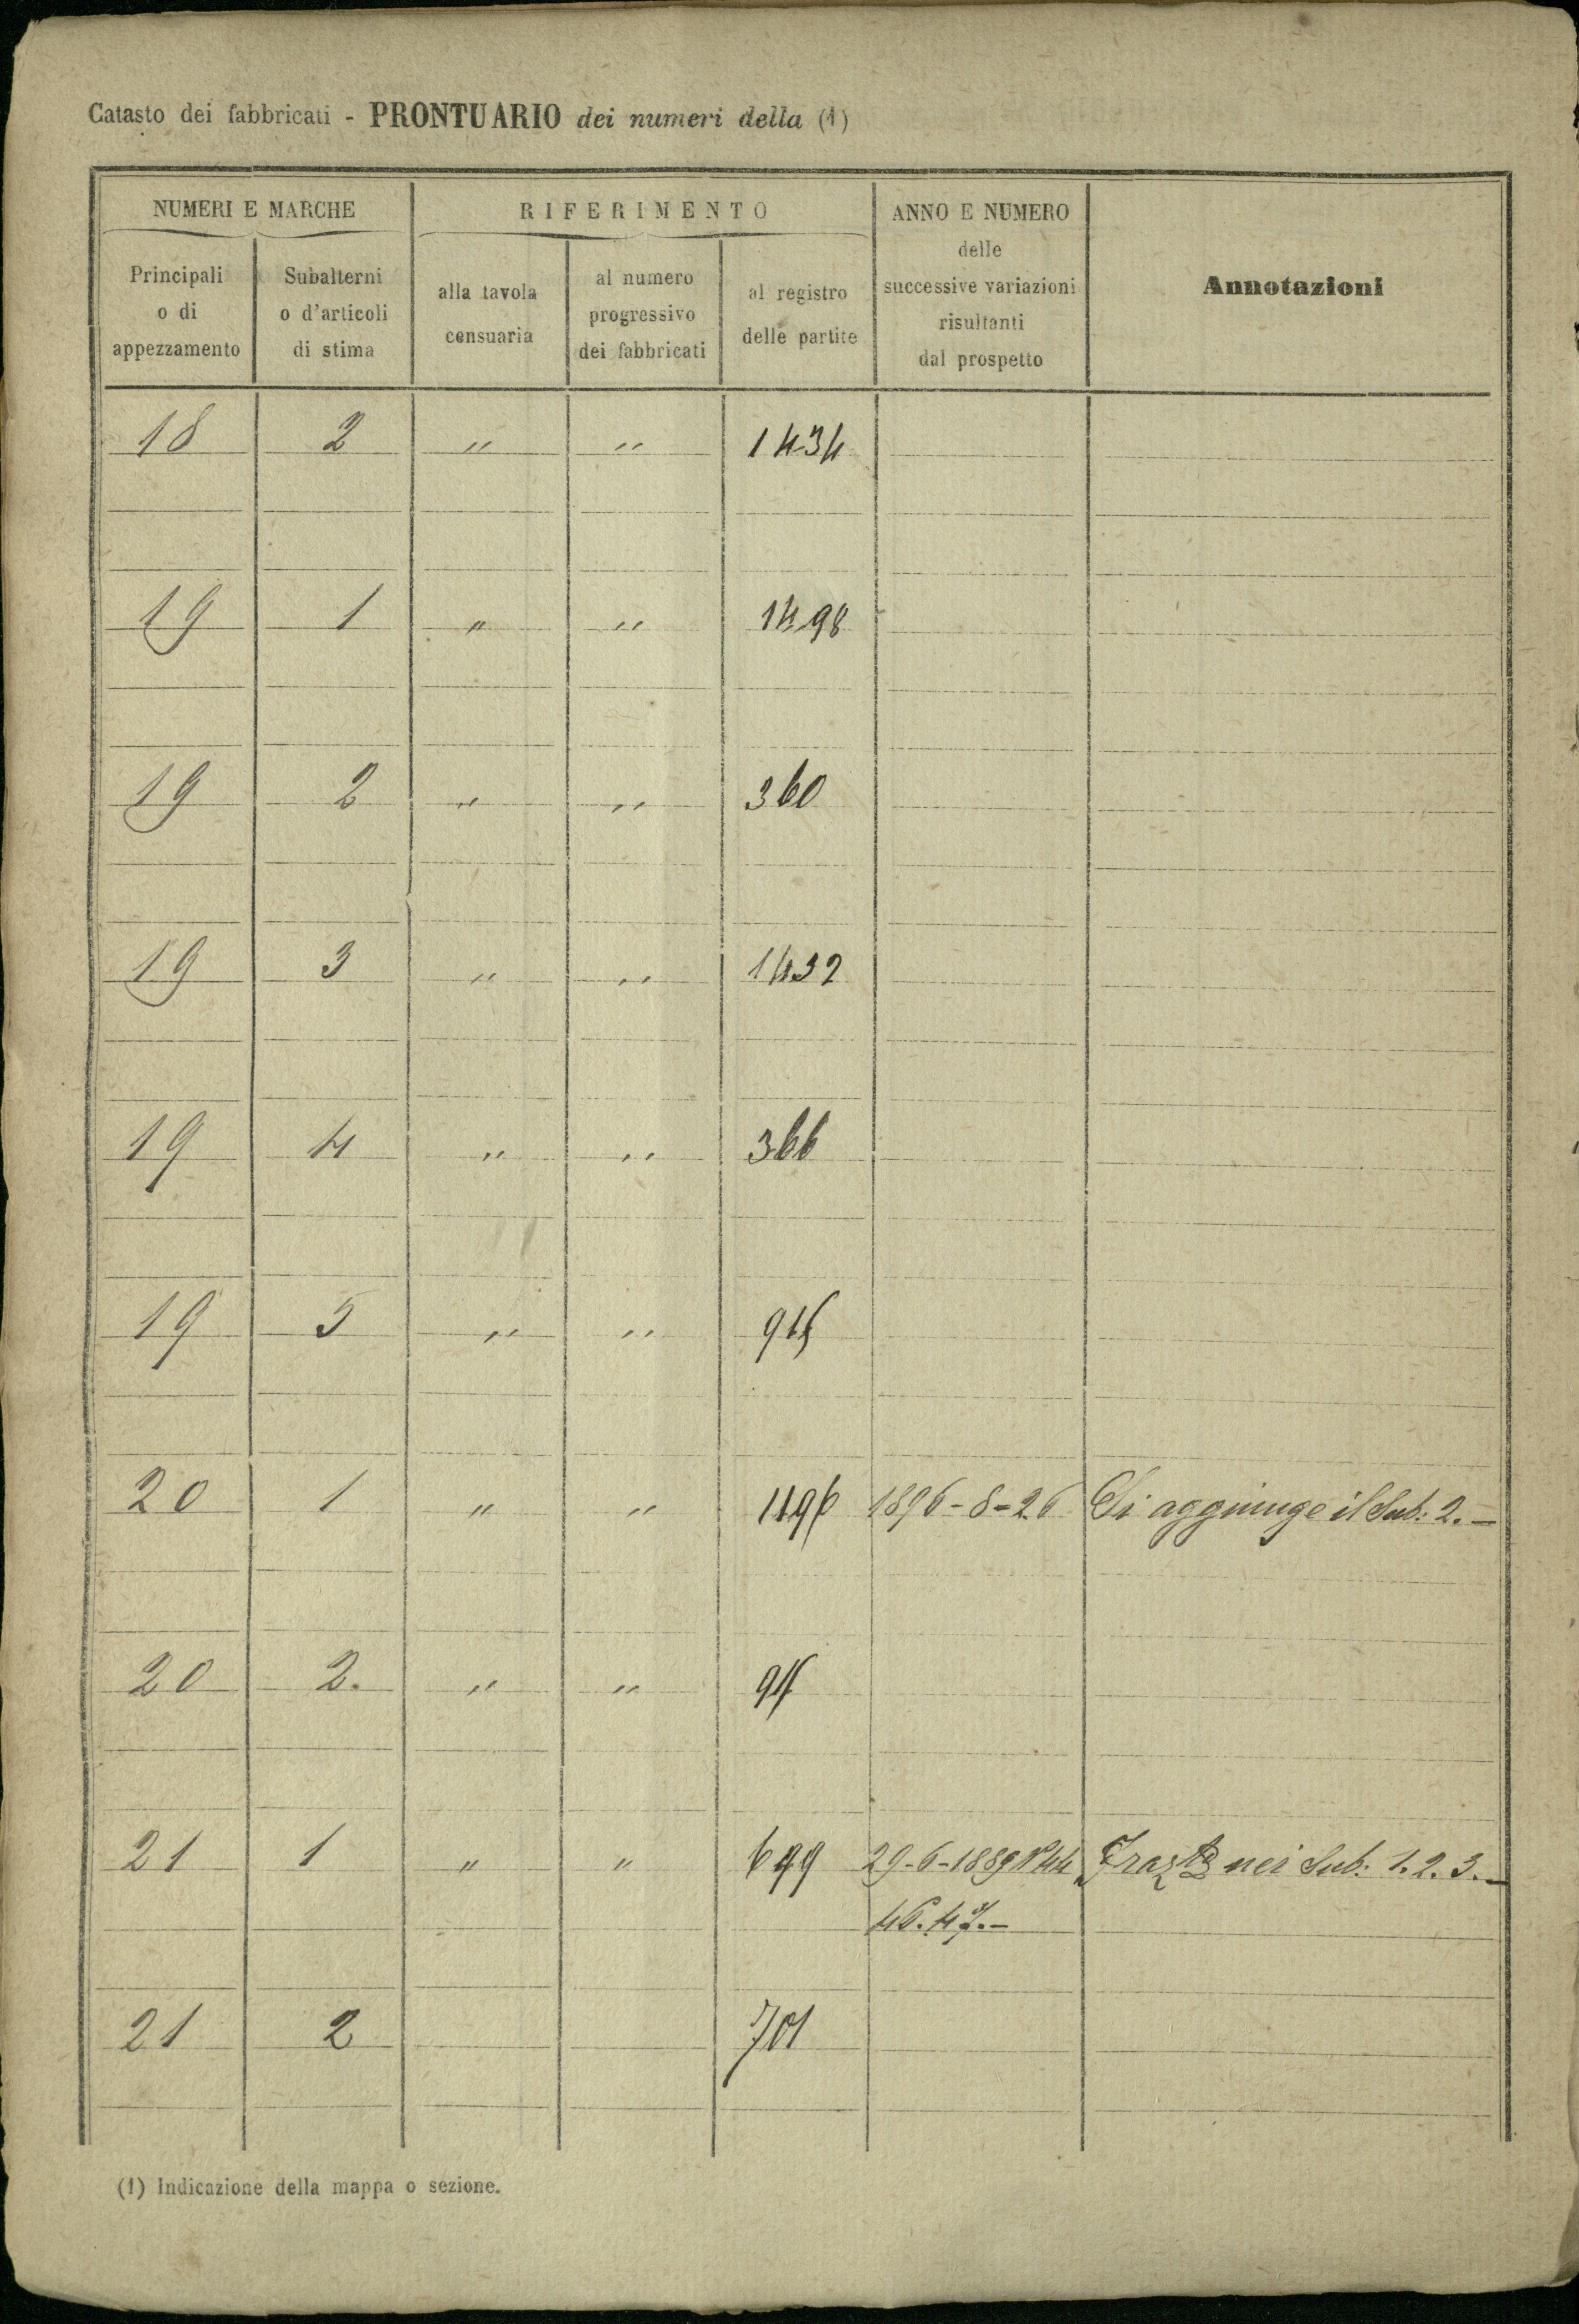 Catasto dei fabbricati - PRONTUARIO dei numeri della (1)
NUMERI E MARCHE
RIFERIMENTO
ANNO E NUMERO
delle
successive variazioni
risultanti
dal prospetto
Annotazioni
Principali
o di
appezzamento
Subalterni
o d'articoli
di stima
alla tavola
censuaria
al numero
progressivo
dei fabbricati
al registro
delle partite
18 2 " " 1434
19 1 " " 1498
19 2 " " 360
19 3 " " 1432
19 4 " " 366
19 5 " "
20 1 " " 1896-8-26 Si aggiunge il Sub: 2.-
20 2. " "
21 1 " " 699 29-6-1889 nei Sub: 1.2.3.-
46.47.-
21 2 701
(1) Indicazione della mappa o sezione.